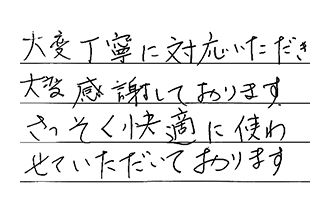 大変丁寧に対応いただき
大変感謝しております
さっそく快適に使わ
せていただいております